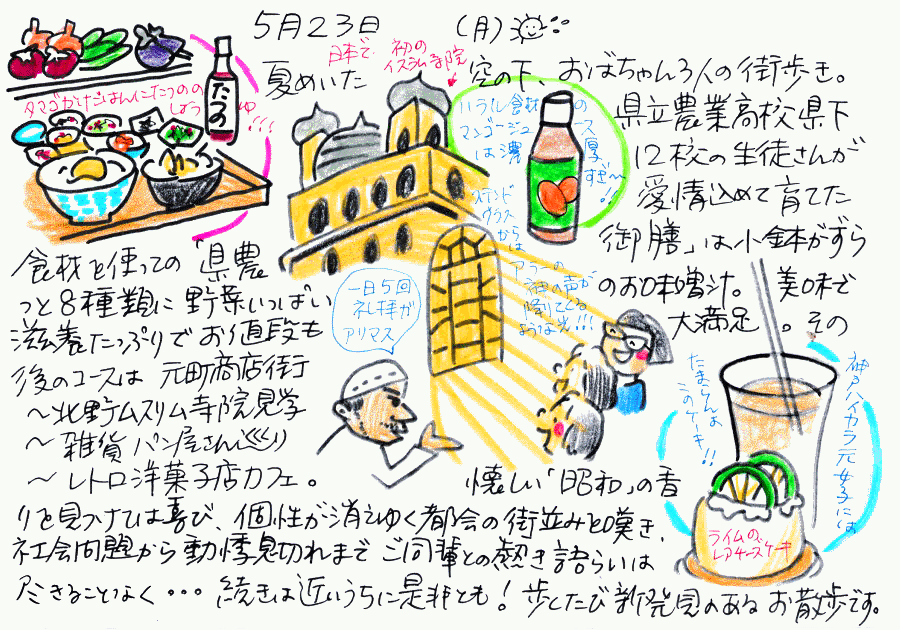 5月23日 (月)
夏めいた 空の下、おばちゃん3人の街歩き。
県立農業高校県下
12校の生徒さんが
愛情込めて育てた
食材を使っての「県農 御膳」は小鉢がずら
っと8種類に野菜いっぱい のお味噌汁。美味で
滋養たっぷりでお値段も 大満足。その
後のコースは 元町商店街
〜北野ムスリム寺院見学
〜雑貨パン屋さん巡り
〜レトロ洋菓子店カフェ。 懐しい「昭和」の香
りを見つけては喜び、個性が消えゆく都会の街並みを嘆き、
社会問題から動悸息切れまでご同輩との熱き語らいは
尽きることなく・・・続きは近いうちに是非とも!歩くたび新発見のあるお散歩です。
タマゴかけごはんにたつのの
しょうゆ!!!
たつの
日本で初の
イスラム寺院
ハラル食材の
マンゴージュース
は濃厚すぎ〜!!
ステンド
グラス
からは
アラーの
神の声が
降りてくる
ような光!!!
一日5回
礼拝が
アリマス
神戸ハイカラ元女子には
たまらんよ
このケーキ!!
ライムの
レアチーズケーキ